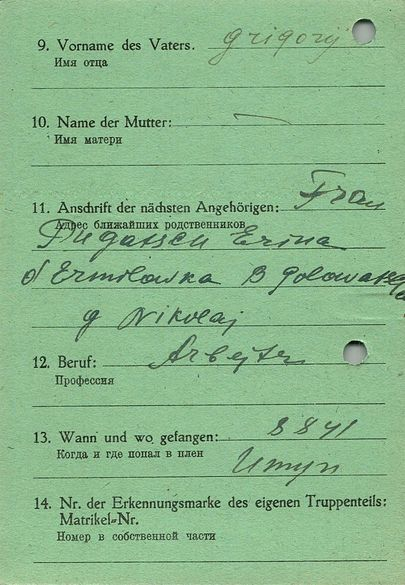 9. Vorname des Vaters. grigorij
Имя отца
10. Name der Mutter: —
Имя матери
11. Anschrift der nächsten Angehörigen: Frau
Адрес ближайших родственников
Erina
d Ermilowka B
g Nikolaj
12. Beruf: Arbejter
Профессия
13. Wann und wo gefangen: 8 8 41
Когда и где попал в плен
Umyn
14. Nr. der Erkennungsmarke des eigenen Truppenteils:
Matrikel-Nr.
Номер в собственной части